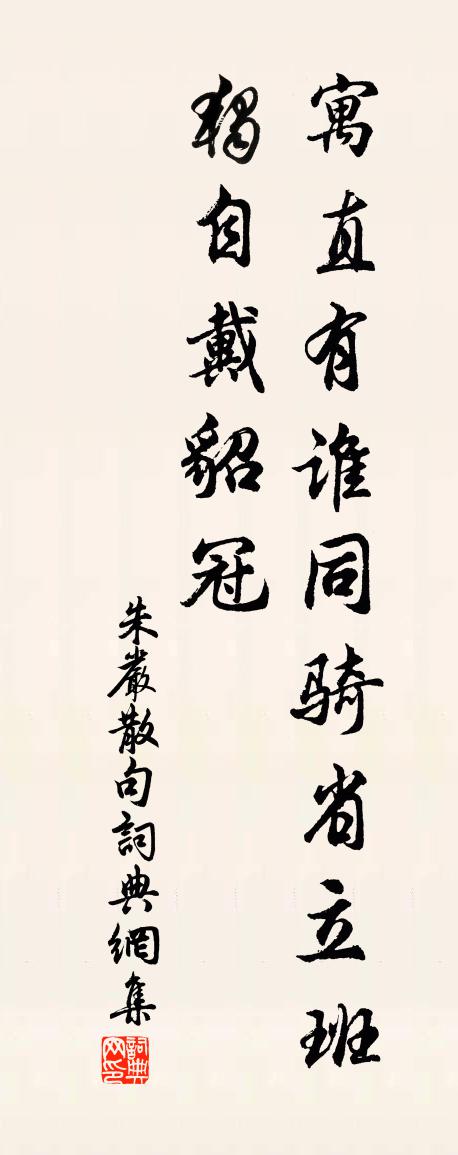 寓直有谁同骑省立班
独自戴貂冠
朱嚴散句詞典網集
詞典网印